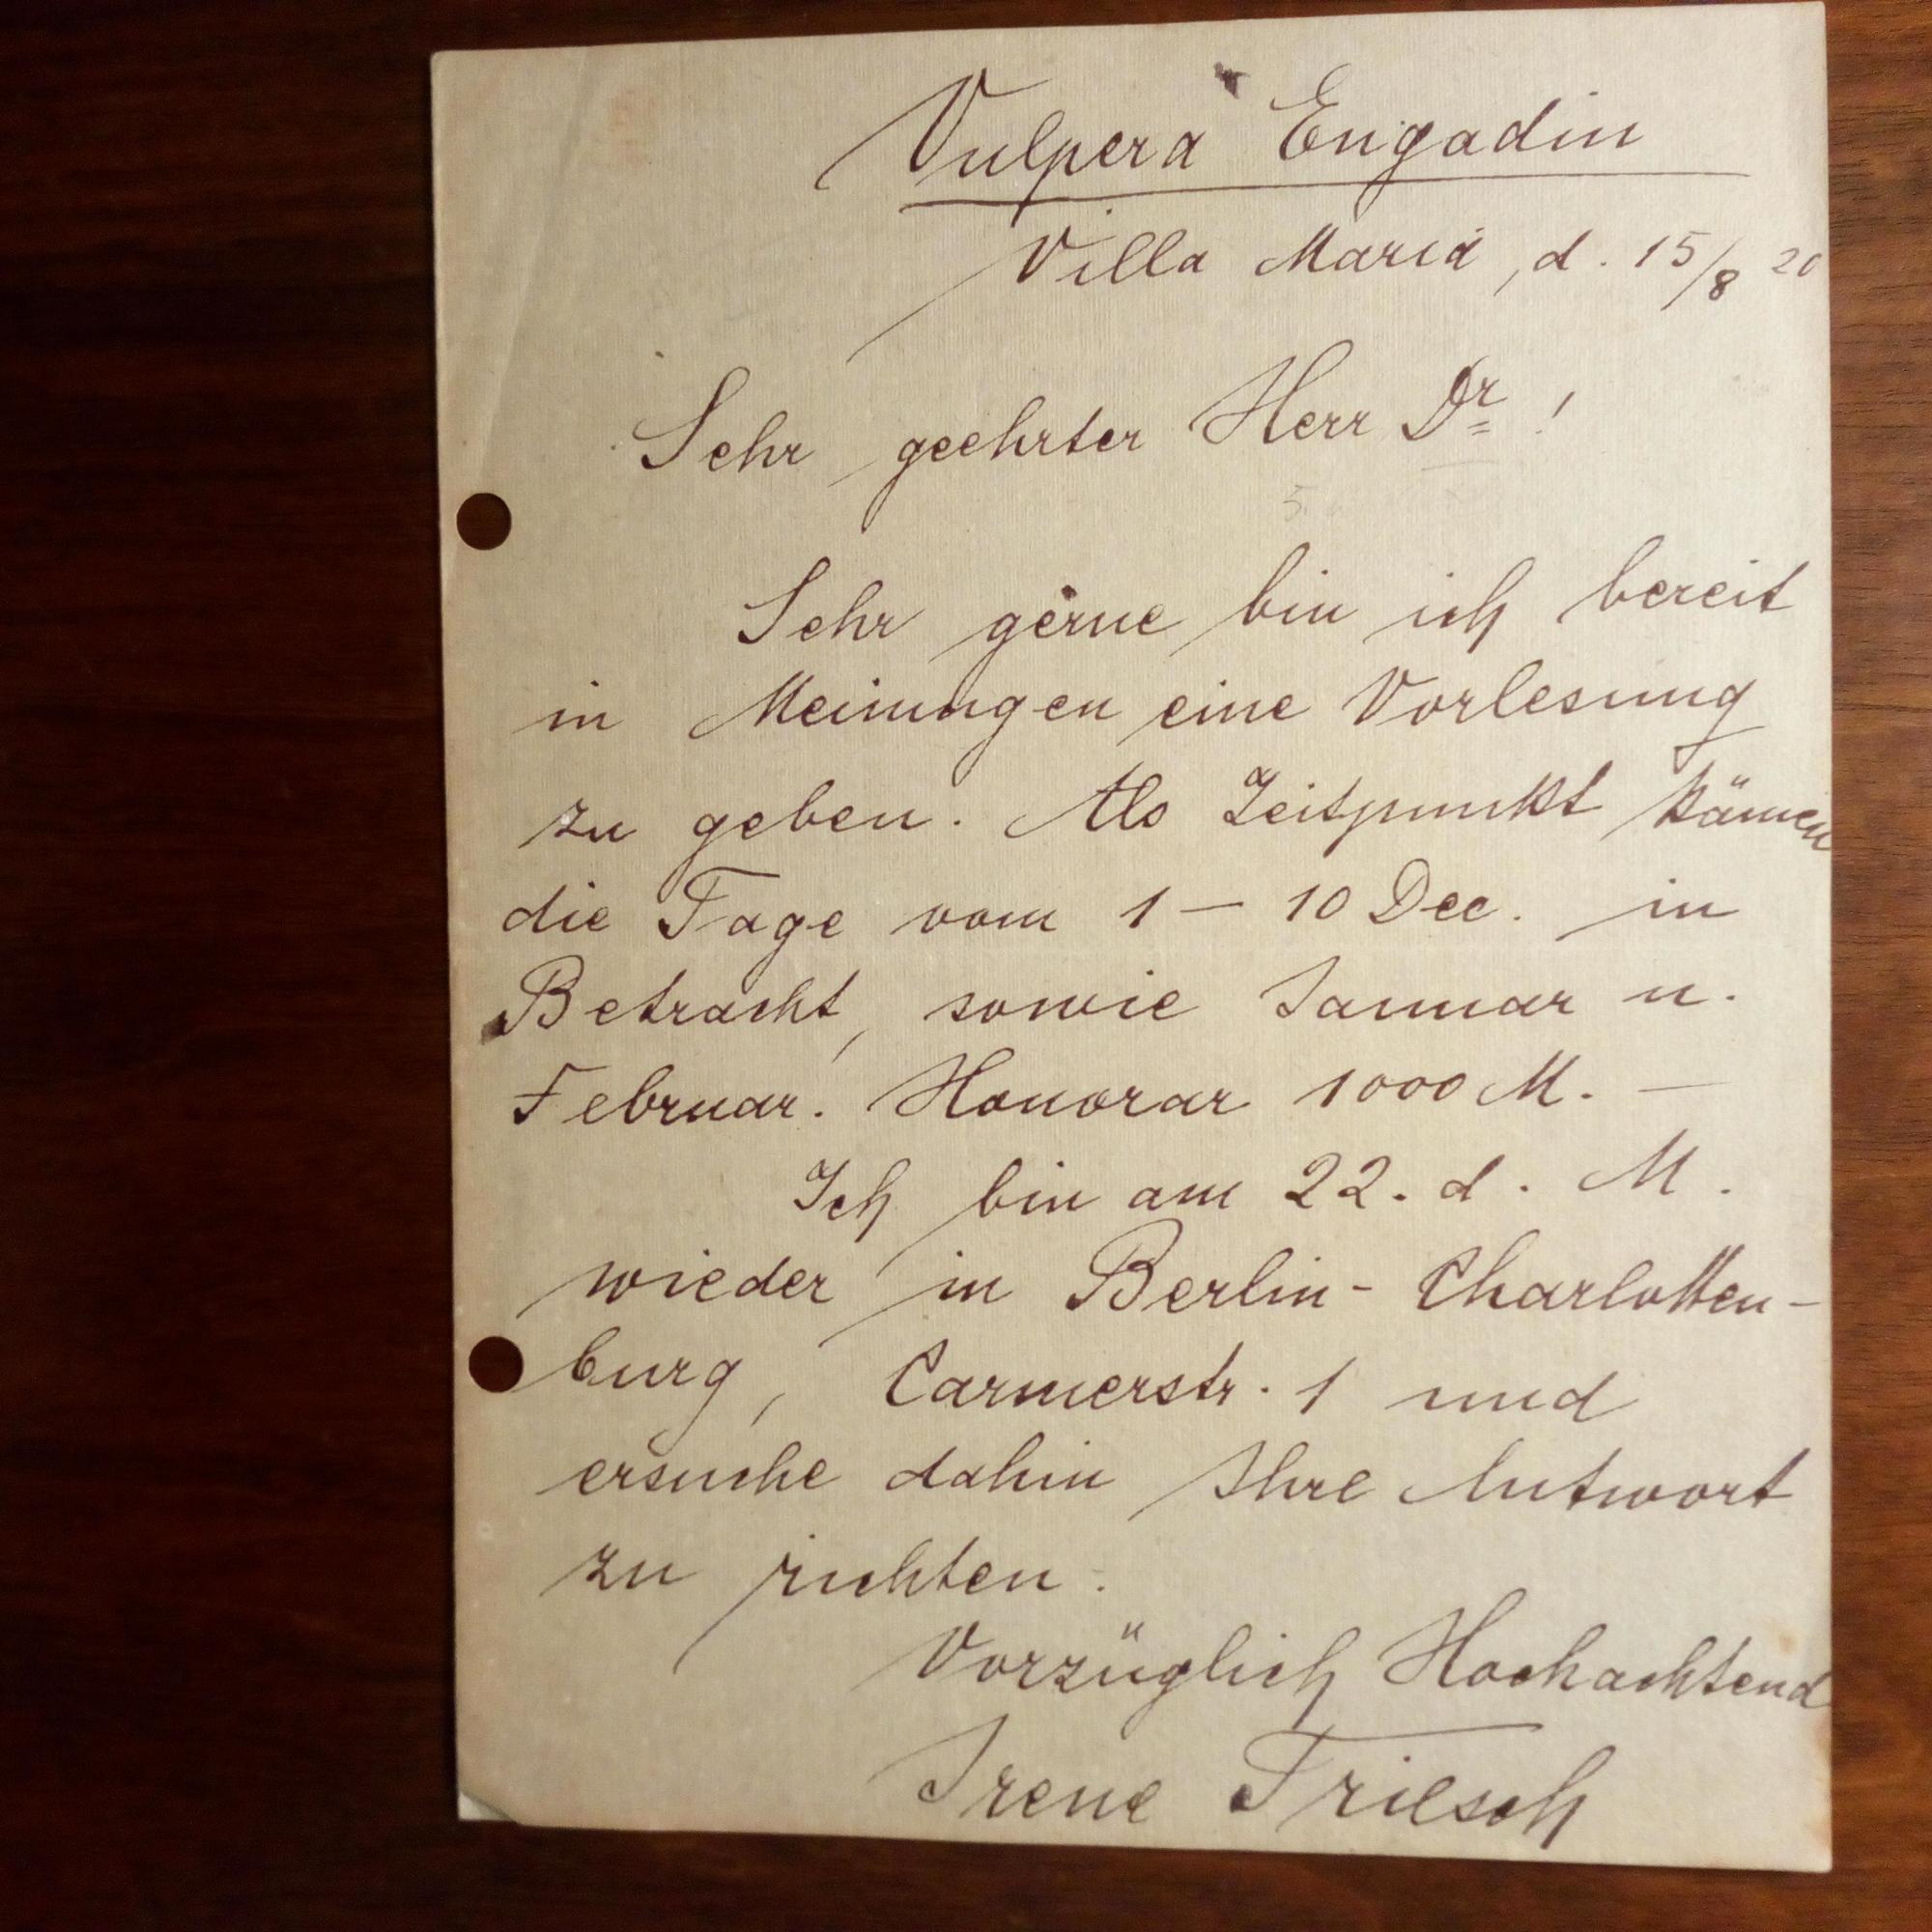 Vulpera Engadin
Villa Maria, d. 15/8 20
Sehr geehrter Herr Dr!
Sehr gerne bin ich bereit
in Meiningen eine Vorlesung
zu geben. Als Zeitpunkt kämen
die Tage vom 1 – 10 Dec. in
Betracht, sowie Januar u.
Februar. Honorar 1000 M. —
Ich bin am 22. d. M.
wieder in Berlin-Charlotten-
burg, Carmerstr. 1 und
ersuche dahin Ihre Antwort
zu richten.
Vorzüglich Hochachtend
Irene Triesch